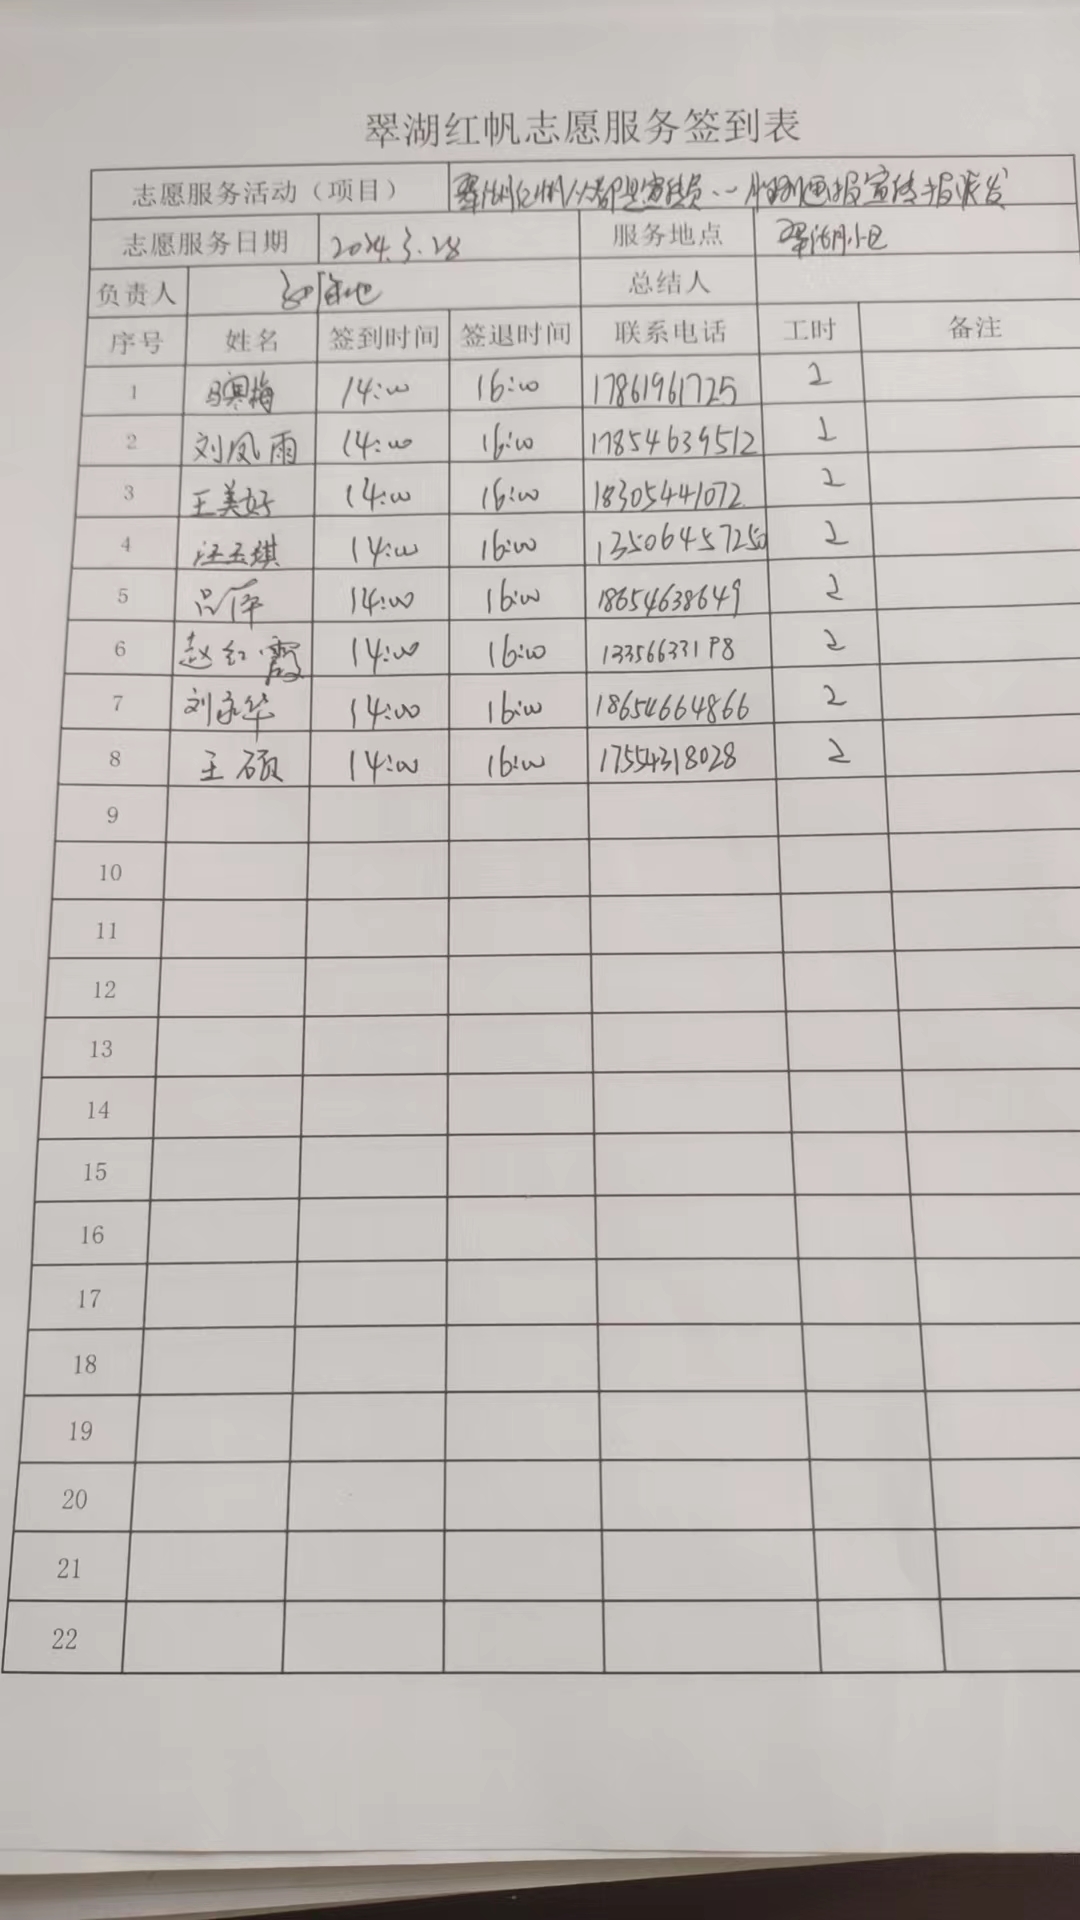 翠湖红帆志愿服务签到表
志愿服务活动（项目） 翠湖红帆人人都是宣传员 画报宣传报派发
志愿服务日期 2024.3.28 服务地点 翠湖小区
负责人 总结人
序号 姓名 签到时间 签退时间 联系电话 工时 备注
1 马寒梅 14:00 16:00 17861961725 2
2 刘凤雨 14:00 16:00 17854639512 2
3 王美好 14:00 16:00 18305441072 2
4 汪玉琪 14:00 16:00 13506457250 2
5 14:00 16:00 18654638649 2
6 赵红霞 14:00 16:00 13356633198 2
7 刘永华 14:00 16:00 18654664866 2
8 王硕 14:00 16:00 17554318028 2
9
10
11
12
13
14
15
16
17
18
19
20
21
22